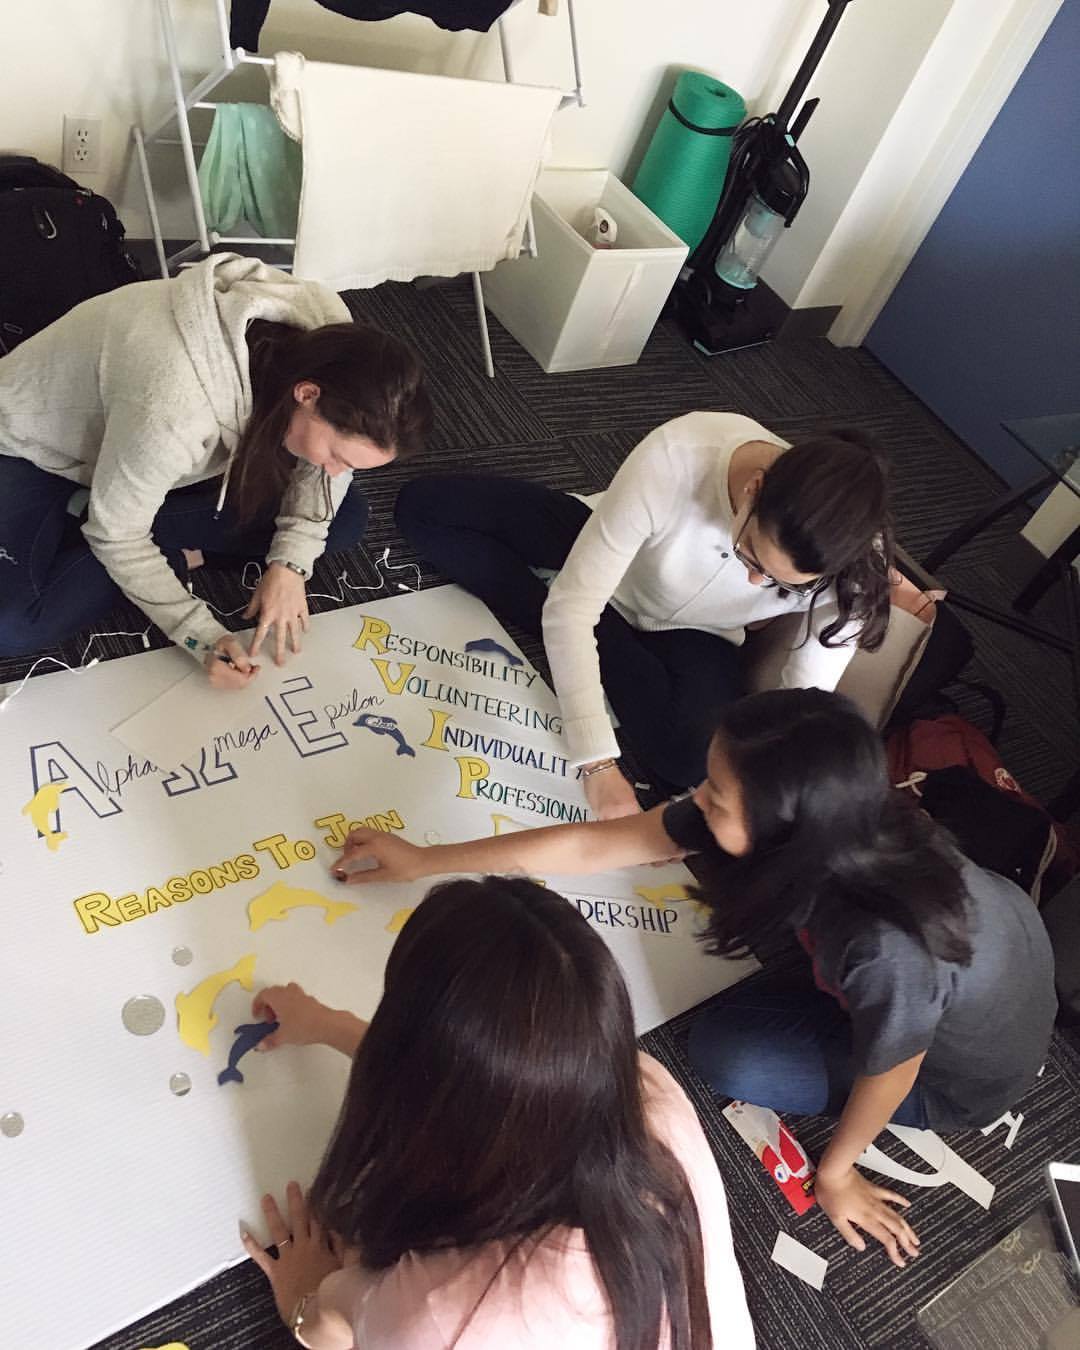 Alpha Omega Epsilon
RESPONSIBILITY
VOLUNTEERING
INDIVIDUALITY
PROFESSIONAL
REASONS TO JOIN